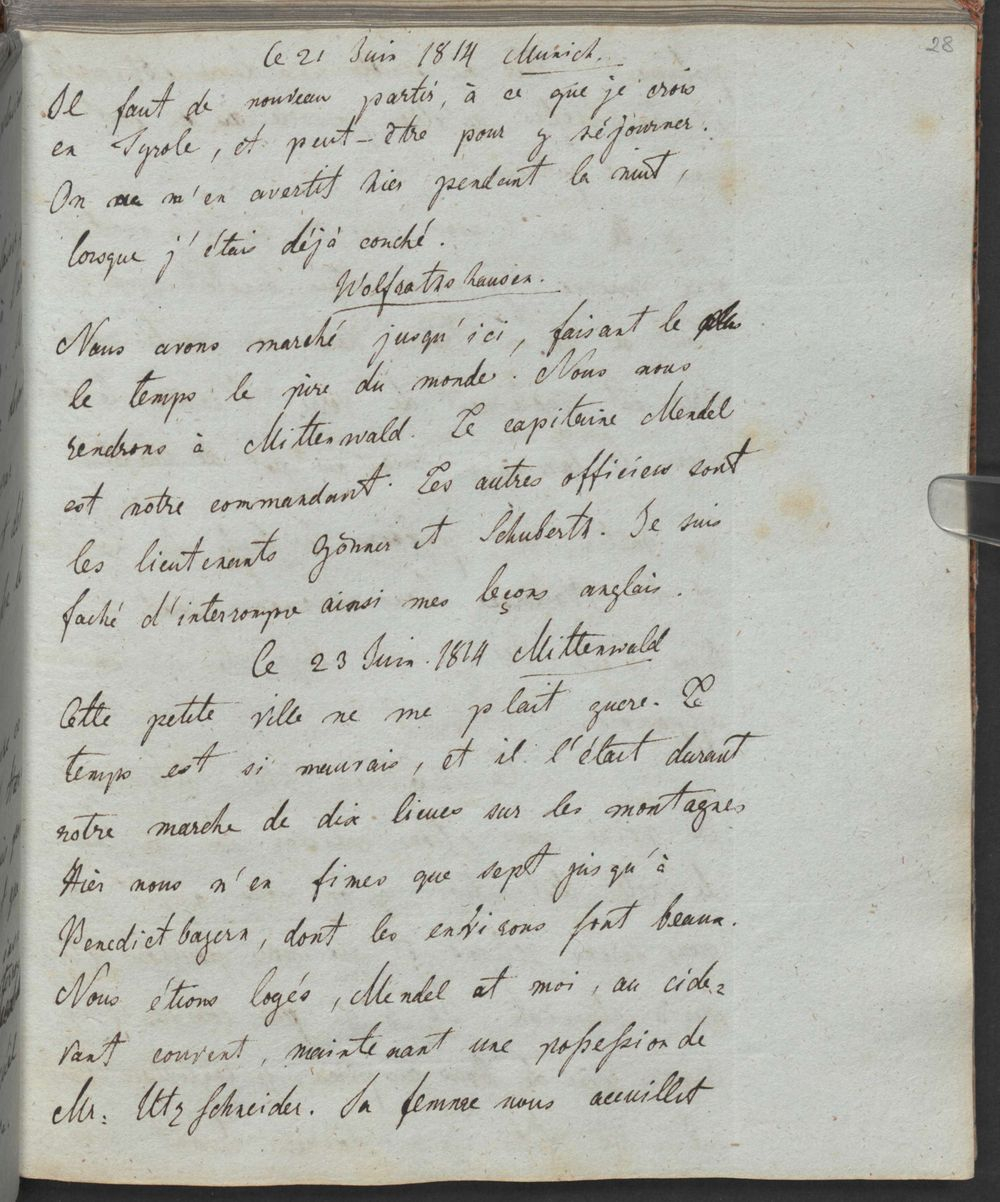 28
Le 21 Juin 1814 Munich.
Il faut de nouveau partir, à ce que je crois
en Tyrole, et peut-être pour y séjourner.
On m'en avertit hier pendant la nuit,
lorsque j'étais déjà couché.
Wolfrathshausen.
Nous avons marché jusqu'ici, faisant le
le temps le pire du monde. Nous nous
rendrons à Mittenwald. Le capitaine Mendel
est notre commandant. Les autres officiers sont
les lieutenants Gönner et Schuberth. Je suis
faché d'interrompre ainsi mes leçons anglais.
Le 23 Juin. 1814 Mittenwald
Cette petite ville ne me plait guere. Le
temps est si mauvais, et il l'était durant
notre marche de dix lieues sur les montagnes
Hier nous n'en fimes que sept jusqu'à
Benedictbayern, dont les environs sont beaux.
Nous étions logés, Mendel et moi, au cide=
vant couvent, maintenant une possession de
Mr: Utzschneider. Sa femme nous accuillit